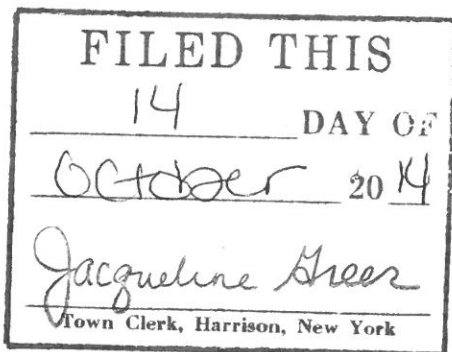 FILED THIS
14 DAY OF
October 2014
Jacqueline Greer
Town Clerk, Harrison, New York